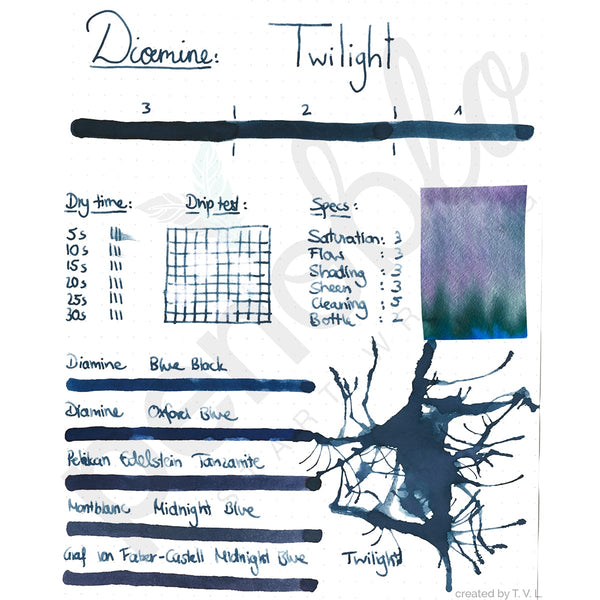 Diamine: Twilight
3 2 1
Dry time: Drip test: Specs:
5s
10s
15s
20s
25s
30s
Saturation: 3
Flow : 3
Shading : 3
Sheen : 3
Cleaning : 5
Bottle : 2
Diamine Blue Black
Diamine Oxford Blue
Pelikan Edelstein Tanzanite
Montblanc Midnight Blue
Graf von Faber-Castell Midnight Blue
Twilight
created by T. V. L.